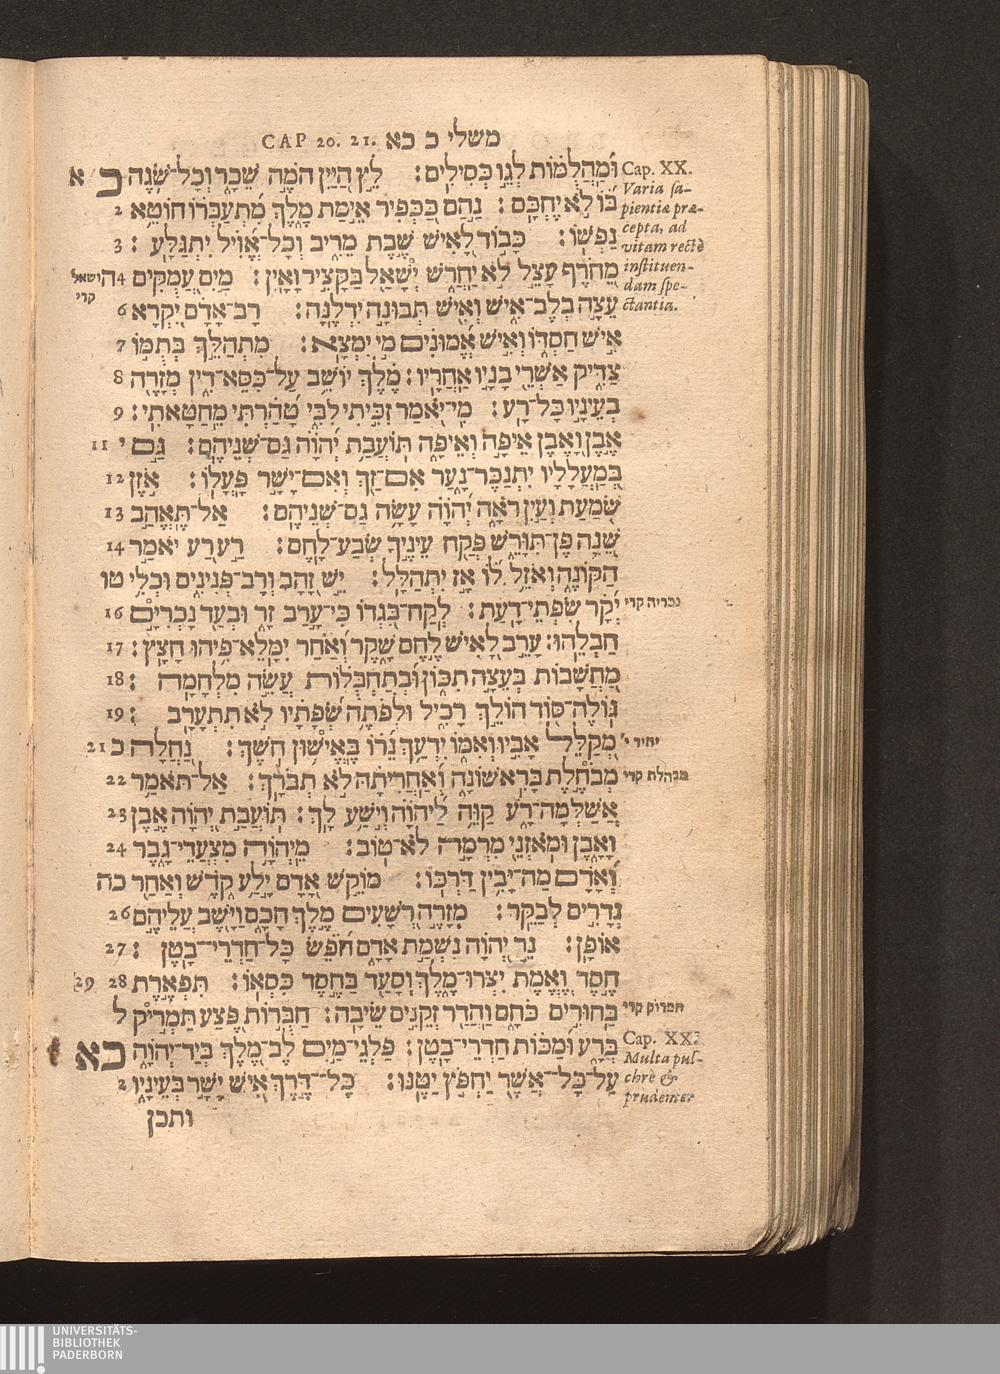 CAP 20. 21. משלי כ כא
וּמַהֲלֻמוֹת לְגֵו כְּסִילִים׃ לֵץ הַיַּיִן הֹמֶה שֵׁכָר וְכָל־שֹׁגֶה כ א
בּוֹ לֹא יֶחְכָּם׃ נַהַם כַּכְּפִיר אֵימַת מֶלֶךְ מִתְעַבְּרוֹ חוֹטֵא 2
נַפְשׁוֹ׃ כָּבוֹד לָאִישׁ שֶׁבֶת מֵרִיב וְכָל־אֱוִיל יִתְגַּלָּע׃ 3
מֵחֹרֶף עָצֵל לֹא יַחֲרֹשׁ יְשָׁאַל בַּקָּצִיר וָאָיִן׃ מַיִם עֲמֻקִּים 4ה
עֵצָה בְלֶב־אִישׁ וְאִישׁ תְּבוּנָה יִדְלֶנָּה׃ רָב־אָדָם יִקְרָא 6
אִישׁ חַסְדּוֹ וְאִישׁ אֱמוּנִים מִי יִמְצָא׃ מִתְהַלֵּךְ בְּתֻמּוֹ 7
צַדִּיק אַשְׁרֵי בָנָיו אַחֲרָיו׃ מֶלֶךְ יוֹשֵׁב עַל־כִּסֵּא־דִין מְזָרֶה 8
בְעֵינָיו כָּל־רָע׃ מִי־יֹאמַר זִכִּיתִי לִבִּי טָהַרְתִּי מֵחַטָּאתִי׃ 9
אֶבֶן וָאֶבֶן אֵיפָה וְאֵיפָה תּוֹעֲבַת יְהוָֹה גַּם־שְׁנֵיהֶם׃ גַּם י 11
בְּמַעֲלָלָיו יִתְנַכֶּר־נָעַר אִם־זַךְ וְאִם־יָשָׁר פָּעֳלוֹ׃ אֹזֶן 12
שֹׁמַעַת וְעַיִן רֹאָה יְהוָֹה עָשָׂה גַם־שְׁנֵיהֶם׃ אַל־תֶּאֱהַב 13
שֵׁנָה פֶּן־תִּוָּרֵשׁ פְּקַח עֵינֶיךָ שְׂבַע־לָחֶם׃ רַע רַע יֹאמַר 14
הַקּוֹנֶה וְאֹזֵל לוֹ אָז יִתְהַלָּל׃ יֵשׁ זָהָב וְרָב־פְּנִינִים וּכְלִי טו
יְקָר שִׂפְתֵי־דָעַת׃ לְקַח־בִּגְדוֹ כִּי־עָרַב זָר וּבְעַד נָכְרִיָּם 16
חַבְלֵהוּ׃ עָרֵב לָאִישׁ לֶחֶם שָׁקֶר וְאַחַר יִמָּלֵא־פִיהוּ חָצָץ׃ 17
מַחֲשָׁבוֹת בְּעֵצָה תִכּוֹן וּבְתַחְבֻּלוֹת עֲשֵׂה מִלְחָמָה׃ 18
גּוֹלֶה־סּוֹד הוֹלֵךְ רָכִיל וּלְפֹתֶה שְׂפָתָיו לֹא תִתְעָרָב׃ 19
מְקַלֵּל אָבִיו וְאִמּוֹ יִדְעַךְ נֵרוֹ בֶּאֱישׁוּן חֹשֶׁךְ׃ נַחֲלָה כ 21
מְבֹחֶלֶת בָּרִאשׁוֹנָה וְאַחֲרִיתָהּ לֹא תְבֹרָךְ׃ אַל־תֹּאמַר 22
אֲשַׁלְּמָה־רָע קַוֵּה לַיהוָֹה וְיֹשַׁע לָךְ׃ תּוֹעֲבַת יְהוָֹה אֶבֶן 23
וָאָבֶן וּמֹאזְנֵי מִרְמָה לֹא־טוֹב׃ מֵיְהוָֹה מִצְעֲדֵי־גָבֶר 24
וְאָדָם מַה־יָּבִין דַּרְכּוֹ׃ מוֹקֵשׁ אָדָם יָלַע קֹדֶשׁ וְאַחַר כה
נְדָרִים לְבַקֵּר׃ מְזָרֶה רְשָׁעִים מֶלֶךְ חָכָם וַיָּשֶׁב עֲלֵיהֶם 26
אוֹפָן׃ נֵר יְהוָֹה נִשְׁמַת אָדָם חֹפֵשׂ כָּל־חַדְרֵי־בָטֶן׃ 27
חֶסֶד וֶאֱמֶת יִצְּרוּ־מֶלֶךְ וְסָעַד בַּחֶסֶד כִּסְאוֹ׃ תִּפְאֶרֶת 28 29
בַּחוּרִים כֹּחָם וַהֲדַר זְקֵנִים שֵׂיבָה׃ חַבֻּרוֹת פֶּצַע תַּמְרִיק ל
בְּרָע וּמַכּוֹת חַדְרֵי־בָטֶן׃ פַּלְגֵי־מַיִם לֶב־מֶלֶךְ בְּיַד־יְהוָֹה כא א
עַל־כָּל־אֲשֶׁר יַחְפֹּץ יַטֶּנּוּ׃ כָּל־דֶּרֶךְ־אִישׁ יָשָׁר בְּעֵינָיו 2
ותכן
Cap. XX.
Varia sa-
pientiæ præ-
cepta, ad
vitam rectè
instituen-
dam spe-
ctantia.
ושאל
קרי
נכריה קרי
יתיר י׳
מבהלת קרי
תמרוק קרי
Cap. XXI
Multa pul-
chrè &
prudenter
UNIVERSITÄTS-
BIBLIOTHEK
PADERBORN